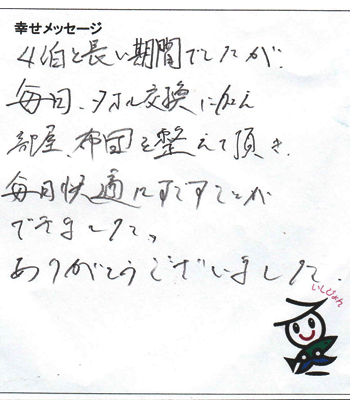 幸せメッセージ
4泊と長い期間でしたが、
毎日、タオル交換に加え
部屋、布団を整えて頂き、
毎日快適にすごすことが
できました。
ありがとうございました。
いしぴょん